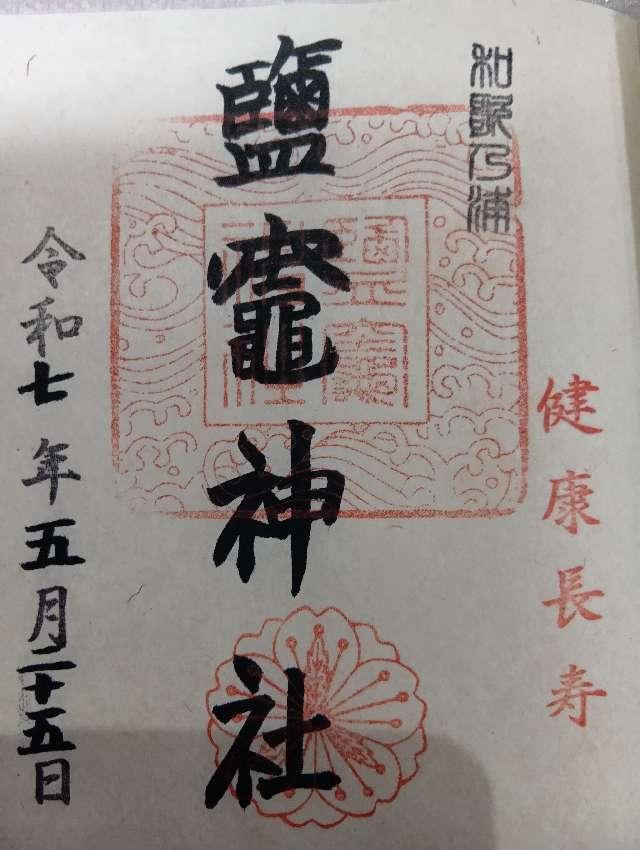 和歌乃浦
健康長寿
鹽竈神社
鹽竈神社
令和七年五月二十五日